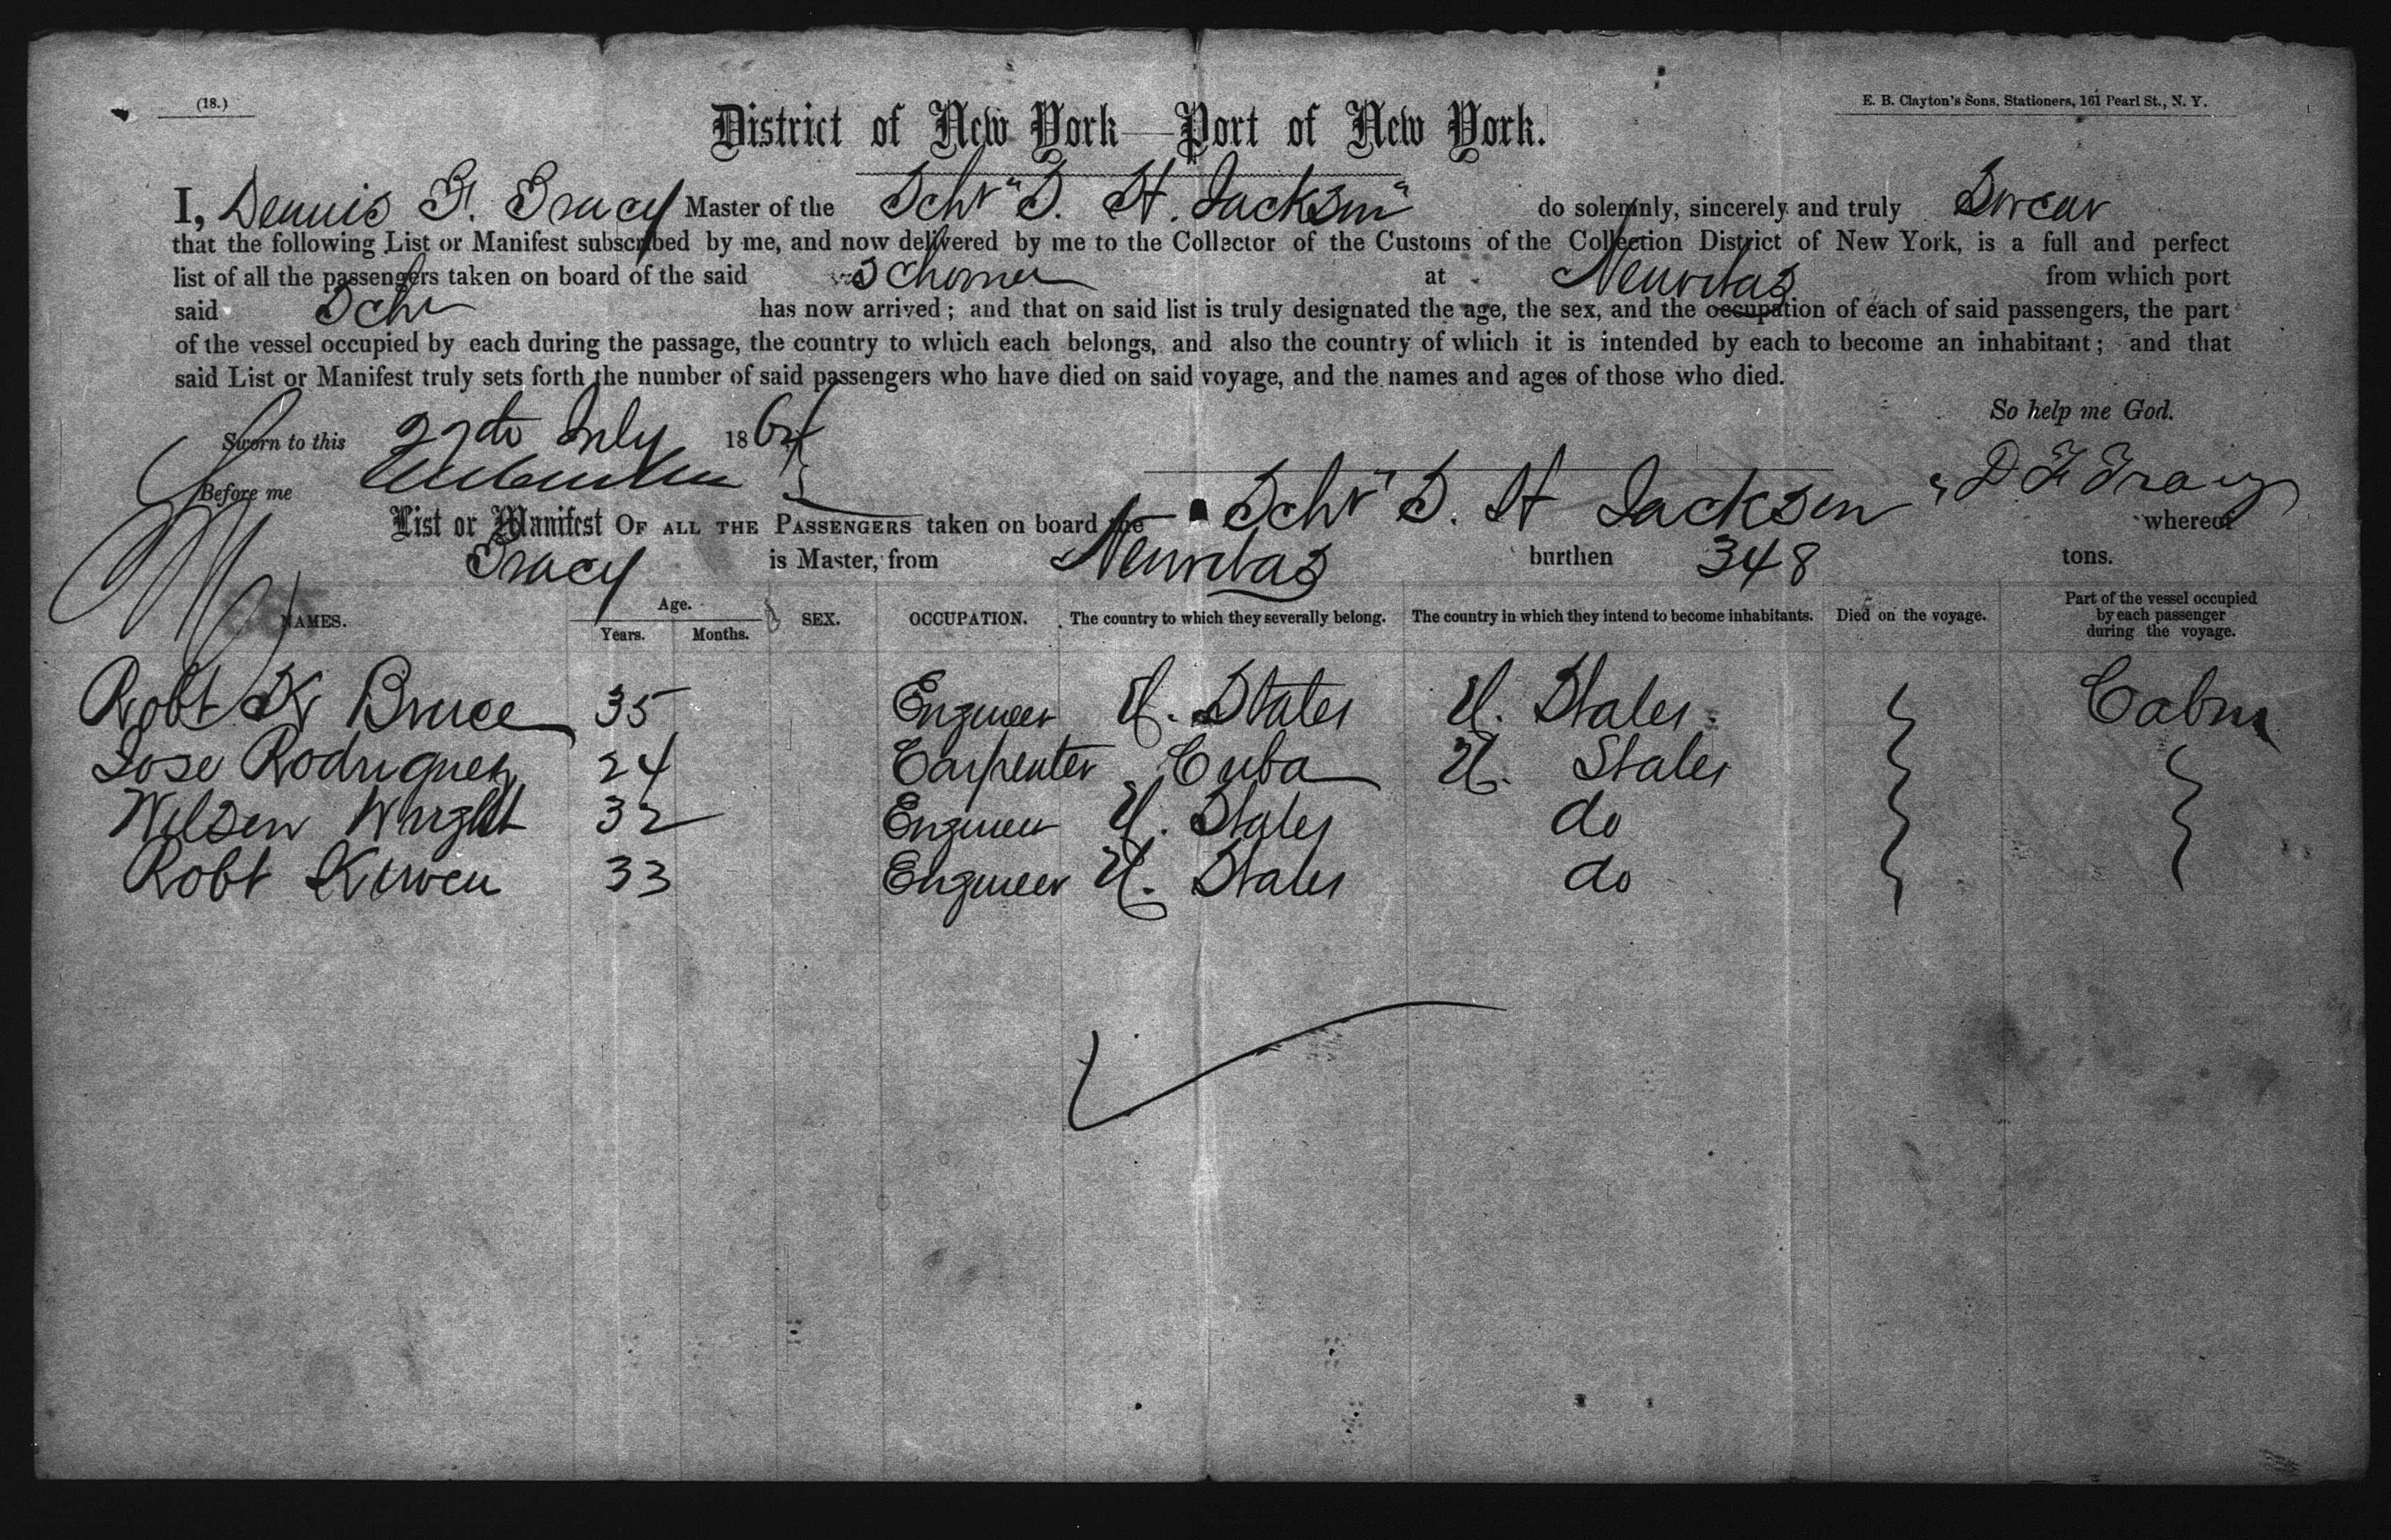 (18.)
E. B. Clayton's Sons, Stationers, 161 Pearl St., N. Y.
District of New York—Port of New York.
I, Dennis F. Tracy Master of the Schr "S. H. Jackson" do solemnly, sincerely and truly Swear
that the following List or Manifest subscribed by me, and now delivered by me to the Collector of the Customs of the Collection District of New York, is a full and perfect
list of all the passengers taken on board of the said Schooner at Neuvitas from which port
said Schr has now arrived; and that on said list is truly designated the age, the sex, and the occupation of each of said passengers, the part
of the vessel occupied by each during the passage, the country to which each belongs, and also the country of which it is intended by each to become an inhabitant; and that
said List or Manifest truly sets forth the number of said passengers who have died on said voyage, and the names and ages of those who died.
So help me God.
Sworn to this 27th July 186
D F Tracy
Before me
List or Manifest OF ALL THE PASSENGERS taken on board the Schr "S. H Jackson" whereof
Tracy is Master, from Neuvitas burthen 348 tons.
NAMES. Age. Years. Months. SEX. OCCUPATION. The country to which they severally belong. The country in which they intend to become inhabitants. Died on the voyage. Part of the vessel occupied by each passenger during the voyage.
Robt K Bruce 35 Engineer U. States U. States Cabin
Jose Rodriguez 24 Carpenter Cuba U. States
Wilson Wright 32 Engineer U. States do
Robt Kirwen 33 Engineer U. States do